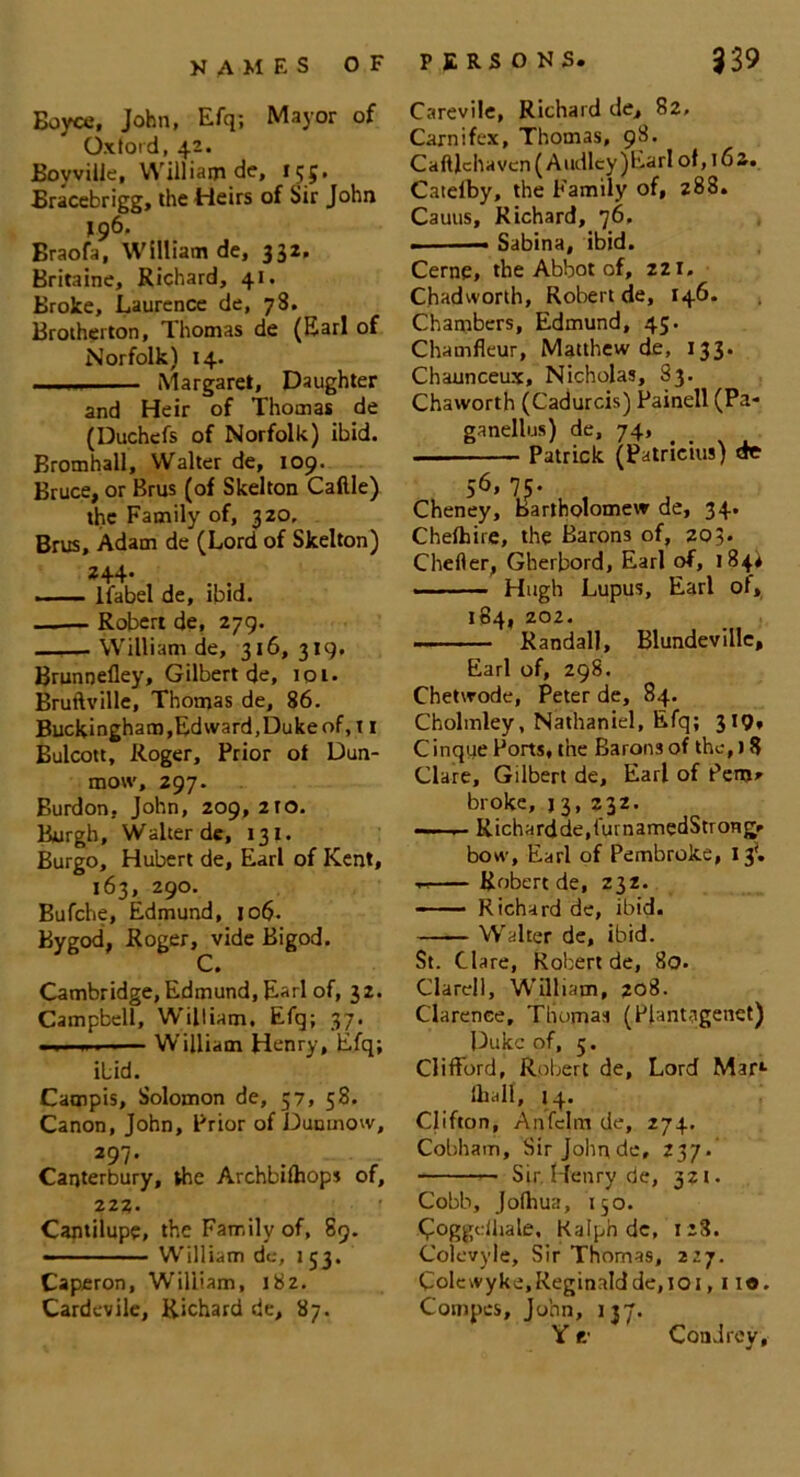 NAMES OF PERSONS. 339
Boyce, John, Eſq; Mayor of
Oxford, 42.
Boyville, William de, 155.
Bracebrigg, the Heirs of Sir John
196.
Braoſa, William de, 332.
Britaine, Richard, 41.
Broke, Laurence de, 78.
Brotherton, Thomas de (Earl of
Norfolk) 14.
——— Margaret, Daughter
and Heir of Thomas de
(Ducheſs of Norfolk) ibid.
Bromhall, Walter de, 109.
Bruce, or Brus (of Skelton Caſtle)
the Family of, 320.
Brus, Adam de (Lord of Skelton)
244.
—— Iſabel de, ibid.
—— Robert de, 279.
—— William de, 316, 319.
Brunneſley, Gilbert de, 101.
Bruſtville, Thomas de, 86.
Buckingham, Edward, Duke of, 11
Bulcott, Roger, Prior of Dun-
mow, 297.
Burdon, John, 209, 210.
Burgh, Walter de, 131.
Burgo, Hubert de, Earl of Kent,
163, 290.
Buſche, Edmund, 106.
Bygod, Roger, vide Bigod.
C.
Cambridge, Edmund, Earl of, 32.
Campbell, William, Eſq; 37.
——— William Henry, Eſq;
ibid.
Campis, Solomon de, 57, 58.
Canon, John, Prior of Dunmow,
297.
Canterbury, the Archbiſhops of,
222.
Cantilupe, the Family of, 89.
——— William de, 153.
Caperon, William, 182.
Cardevile, Richard de, 87.
Carevile, Richard de, 82.
Carnifex, Thomas, 98.
Caſtlehaven (Audley) Earl of, 162.
Cateſby, the Family of, 288.
Cauus, Richard, 76.
——— Sabina, ibid.
Cerne, the Abbot of, 221.
Chadworth, Robert de, 146.
Chambers, Edmund, 45.
Chamfleur, Matthew de, 133.
Chaunceux, Nicholas, 83.
Chaworth (Cadurcis) Painell (Pa-
ganellus) de, 74,
——— Patrick (Patricius) de
56, 75.
Cheney, Bartholomew de, 34.
Cheſhire, the Barons of, 203.
Cheſter, Gherbord, Earl of, 184.
——— Hugh Lupus, Earl of,
184, 202.
——— Randall, Blundeville,
Earl of, 298.
Chetwode, Peter de, 84.
Cholmley, Nathaniel, Eſq; 319,
Cinque Ports, the Barons of the, 18
Clare, Gilbert de, Earl of Pem-
broke, 13, 232.
—— Richard de, ſurnamed Strong-
bow, Earl of Pembroke, 13.
—— Robert de, 232.
—— Richard de, ibid.
—— Walter de, ibid.
St. Clare, Robert de, 80.
Clarell, William, 208.
Clarence, Thomas (Plantagenet)
Duke of, 5.
Clifford, Robert de, Lord Mar-
ſhall, 14.
Clifton, Anſelm de, 274.
Cobham, Sir John de, 237.
——— Sir Henry de, 321.
Cobb, Joſhua, 150.
Coggeſhale, Ralph de, 128.
Colevyle, Sir Thomas, 227.
Colewyke, Reginald de, 101, 110.
Compes, John, 137.
Y e Condrey,